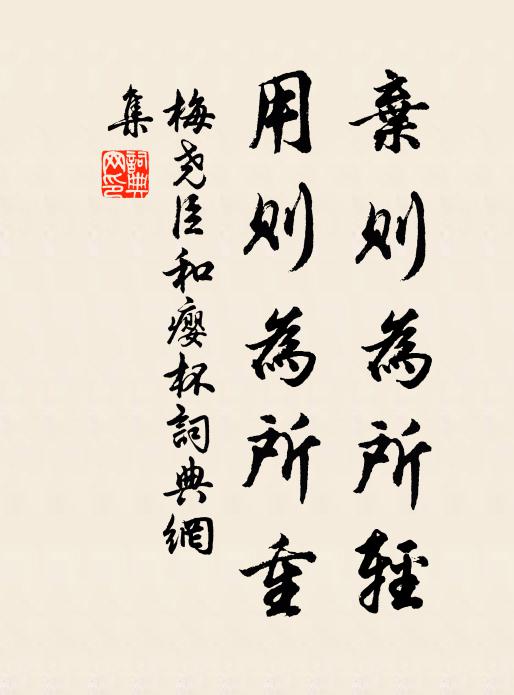 棄則為所輕
用則為所重
梅堯臣和癭杯詞典網
集
詞典
网印